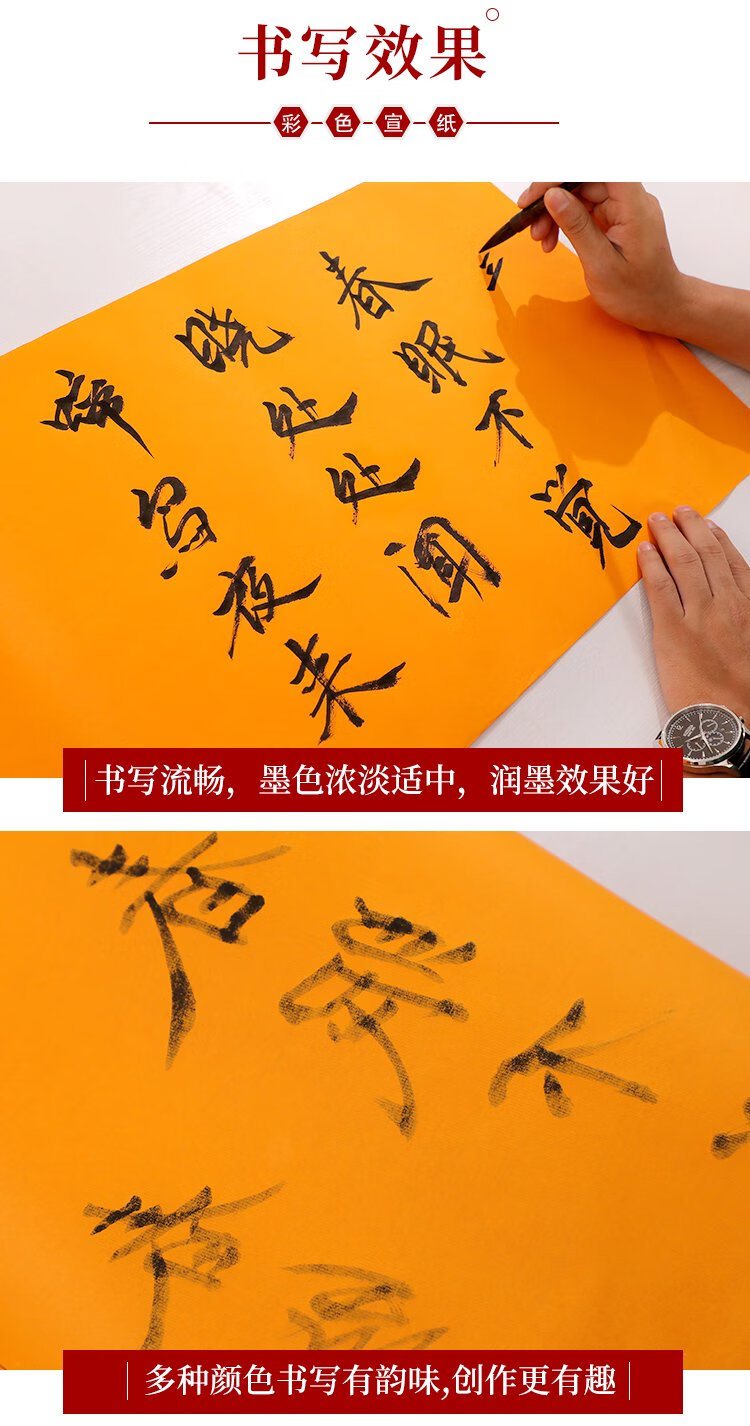 书写效果
彩色宣纸
春眠不觉
晓处处闻
啼鸟夜来
书写流畅，墨色浓淡适中，润墨效果好
多种颜色书写有韵味,创作更有趣